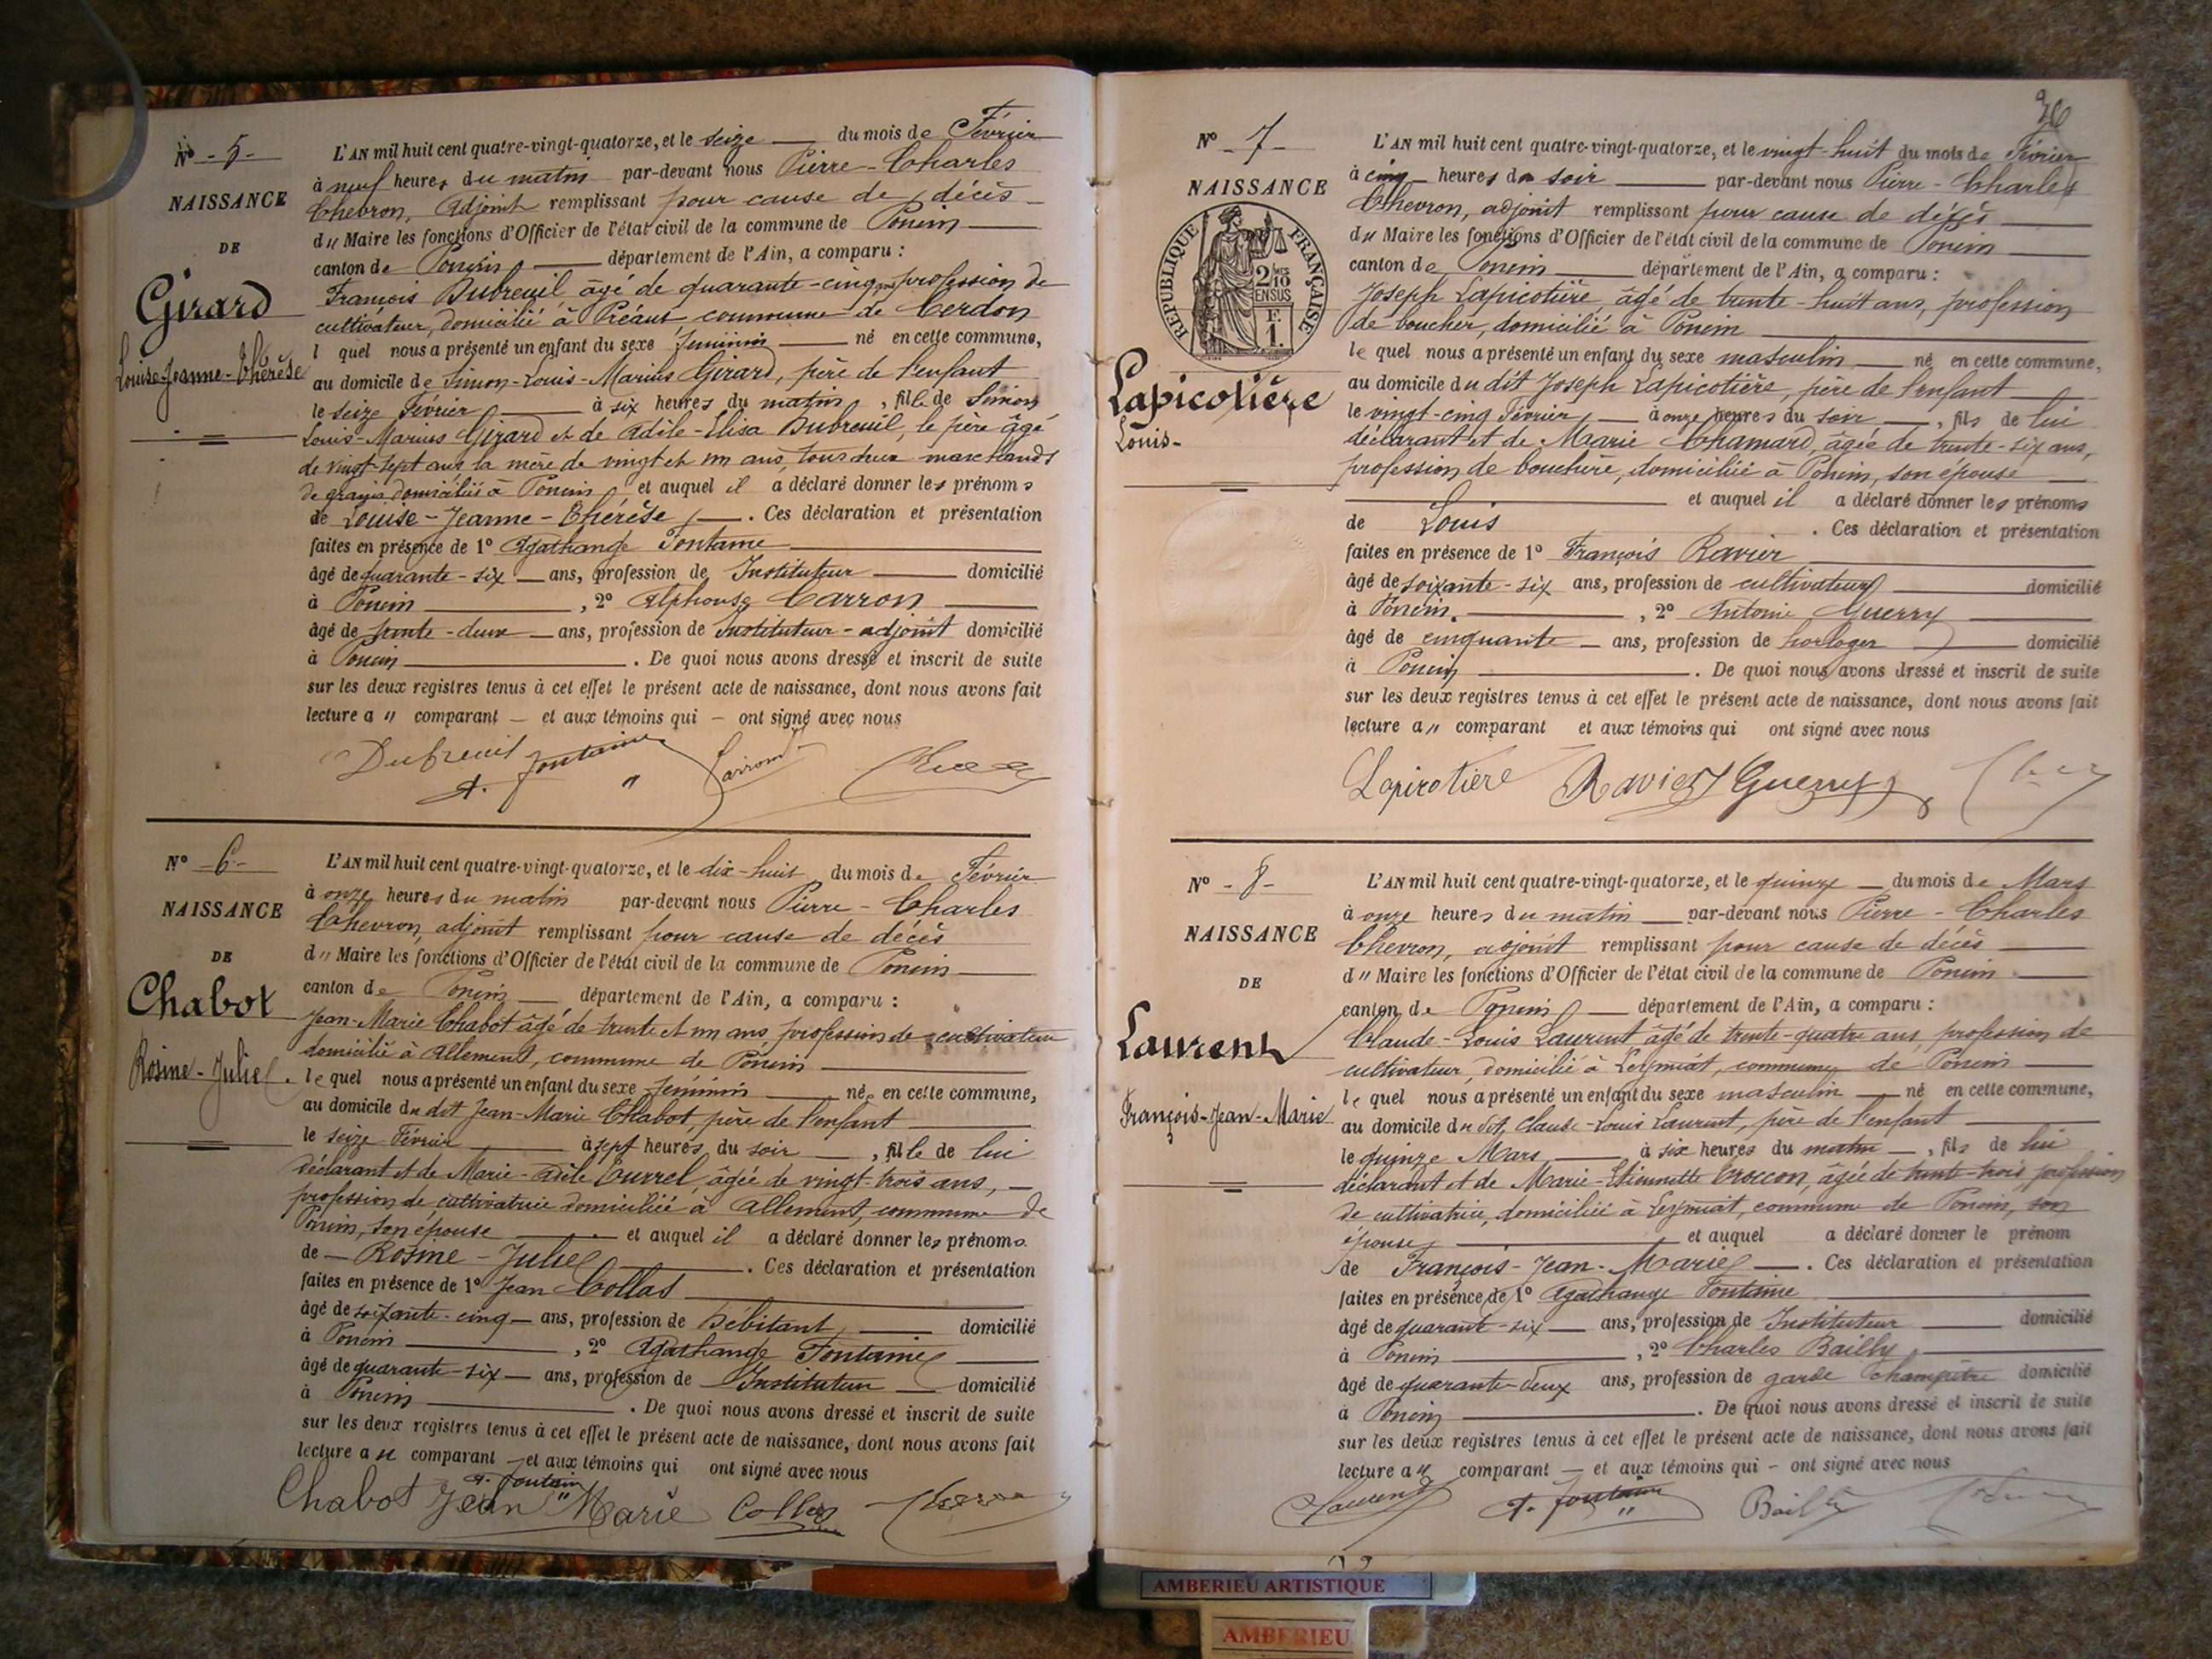 N° - 5 -
NAISSANCE
DE
Girard
Louise-Jeanne-Thérèse
L'AN mil huit cent quatre-vingt-quatorze, et le seize du mois de Février
à neuf heures du matin par-devant nous Pierre-Charles
Chevron, Adjoint remplissant pour cause de décès
du Maire les fonctions d'Officier de l'état civil de la commune de Poncin
canton de Poncin département de l'Ain, a comparu :
François Dubreuil âgé de quarante-cinq ans profession de
cultivateur, domicilié à Préaux commune de Cerdon
l quel nous a présenté un enfant du sexe féminin né en cette commune,
au domicile de Simon-Louis-Marius Girard, père de l'enfant
le seize Février à six heures du matin, fille de Simon
Louis-Marius Girard et de Adèle-Elisa Dubreuil, le père âgé
de vingt-sept ans la mère de vingt et un ans, tous deux marchands
de grains domiciliés à Poncin et auquel il a déclaré donner les prénoms
de Louise-Jeanne-Thérèse. Ces déclaration et présentation
faites en présence de 1° Agathange Fontaine
âgé de quarante-six ans, profession de Instituteur domicilié
à Poncin, 2° Alphonse Carron
âgé de trente-deux ans, profession de Instituteur-adjoint domicilié
à Poncin. De quoi nous avons dressé et inscrit de suite
sur les deux registres tenus à cet effet le présent acte de naissance, dont nous avons fait
lecture au comparant et aux témoins qui ont signé avec nous
Dubreuil A. Fontaine Carron
N° - 6 -
NAISSANCE
DE
Chabot
Rosine-Julie
L'AN mil huit cent quatre-vingt-quatorze, et le dix-huit du mois de Février
à onze heures du matin par-devant nous Pierre-Charles
Chevron, adjoint remplissant pour cause de décès
du Maire les fonctions d'Officier de l'état civil de la commune de Poncin
canton de Poncin département de l'Ain, a comparu :
Jean-Marie Chabot âgé de trente et un ans, profession de cultivateur
domicilié à Allement, commune de Poncin
le quel nous a présenté un enfant du sexe féminin née en cette commune,
au domicile du dit Jean-Marie Chabot, père de l'enfant
le seize Février à sept heures du soir, fille de lui
déclarant et de Marie-Adèle Curvel, âgée de vingt-trois ans,
profession de cultivatrice domiciliée à Allement, commune de
Poncin, son épouse et auquel il a déclaré donner les prénoms
de Rosine-Julie. Ces déclaration et présentation
faites en présence de 1° Jean Collas
âgé de soixante-cinq ans, profession de Débitant domicilié
à Poncin, 2° Agathange Fontaine
âgé de quarante-six ans, profession de Instituteur domicilié
à Poncin. De quoi nous avons dressé et inscrit de suite
sur les deux registres tenus à cet effet le présent acte de naissance, dont nous avons fait
lecture au comparant et aux témoins qui ont signé avec nous
A. Fontaine
Chabot Jean Marie Collas Chevron
26
N° - 7 -
NAISSANCE
DE
RÉPUBLIQUE FRANÇAISE
2 MES
10
EN SUS
F.
1.
Lapicotière
Louis
L'AN mil huit cent quatre-vingt-quatorze, et le vingt-huit du mois de Février
à cinq heures du soir par-devant nous Pierre-Charles
Chevron, adjoint remplissant pour cause de décès
du Maire les fonctions d'Officier de l'état civil de la commune de Poncin
canton de Poncin département de l'Ain, a comparu :
Joseph Lapicotière âgé de trente-huit ans, profession
de boucher, domicilié à Poncin
le quel nous a présenté un enfant du sexe masculin né en cette commune,
au domicile du dit Joseph Lapicotière, père de l'enfant
le vingt-cinq Février à onze heures du soir, fils de lui
déclarant et de Marie Chamard, âgée de trente-six ans,
profession de bouchère, domiciliée à Poncin, son épouse
et auquel il a déclaré donner les prénoms
de Louis. Ces déclaration et présentation
faites en présence de 1° François Ravier
âgé de soixante-six ans, profession de cultivateur domicilié
à Poncin, 2° Antoine Guerry
âgé de cinquante ans, profession de horloger domicilié
à Poncin. De quoi nous avons dressé et inscrit de suite
sur les deux registres tenus à cet effet le présent acte de naissance, dont nous avons fait
lecture au comparant et aux témoins qui ont signé avec nous
Lapicotière Ravier Guerry
N° - 8 -
NAISSANCE
DE
Laurent
François-Jean-Marie
L'AN mil huit cent quatre-vingt-quatorze, et le quinze du mois de Mars
à onze heures du matin par-devant nous Pierre-Charles
Chevron, adjoint remplissant pour cause de décès
du Maire les fonctions d'Officier de l'état civil de la commune de Poncin
canton de Poncin département de l'Ain, a comparu :
Claude-Louis Laurent âgé de trente-quatre ans, profession de
cultivateur, domicilié à Leymiat, commune de Poncin
le quel nous a présenté un enfant du sexe masculin né en cette commune,
au domicile du dit Claude-Louis Laurent, père de l'enfant
le quinze Mars à six heures du matin, fils de lui
déclarant et de Marie-Etiennette Troccon, âgée de trente-trois, profession
de cultivatrice, domiciliée à Leymiat, commune de Poncin, son
épouse et auquel a déclaré donner le prénom
de François-Jean-Marie. Ces déclaration et présentation
faites en présence de 1° Agathange Fontaine
âgé de quarante-six ans, profession de Instituteur domicilié
à Poncin, 2° Charles Bailly
âgé de quarante-deux ans, profession de garde champêtre domicilié
à Poncin. De quoi nous avons dressé et inscrit de suite
sur les deux registres tenus à cet effet le présent acte de naissance, dont nous avons fait
lecture au comparant et aux témoins qui ont signé avec nous
Laurent A. Fontaine Bailly
AMBERIEU ARTISTIQUE
AMBERIEU